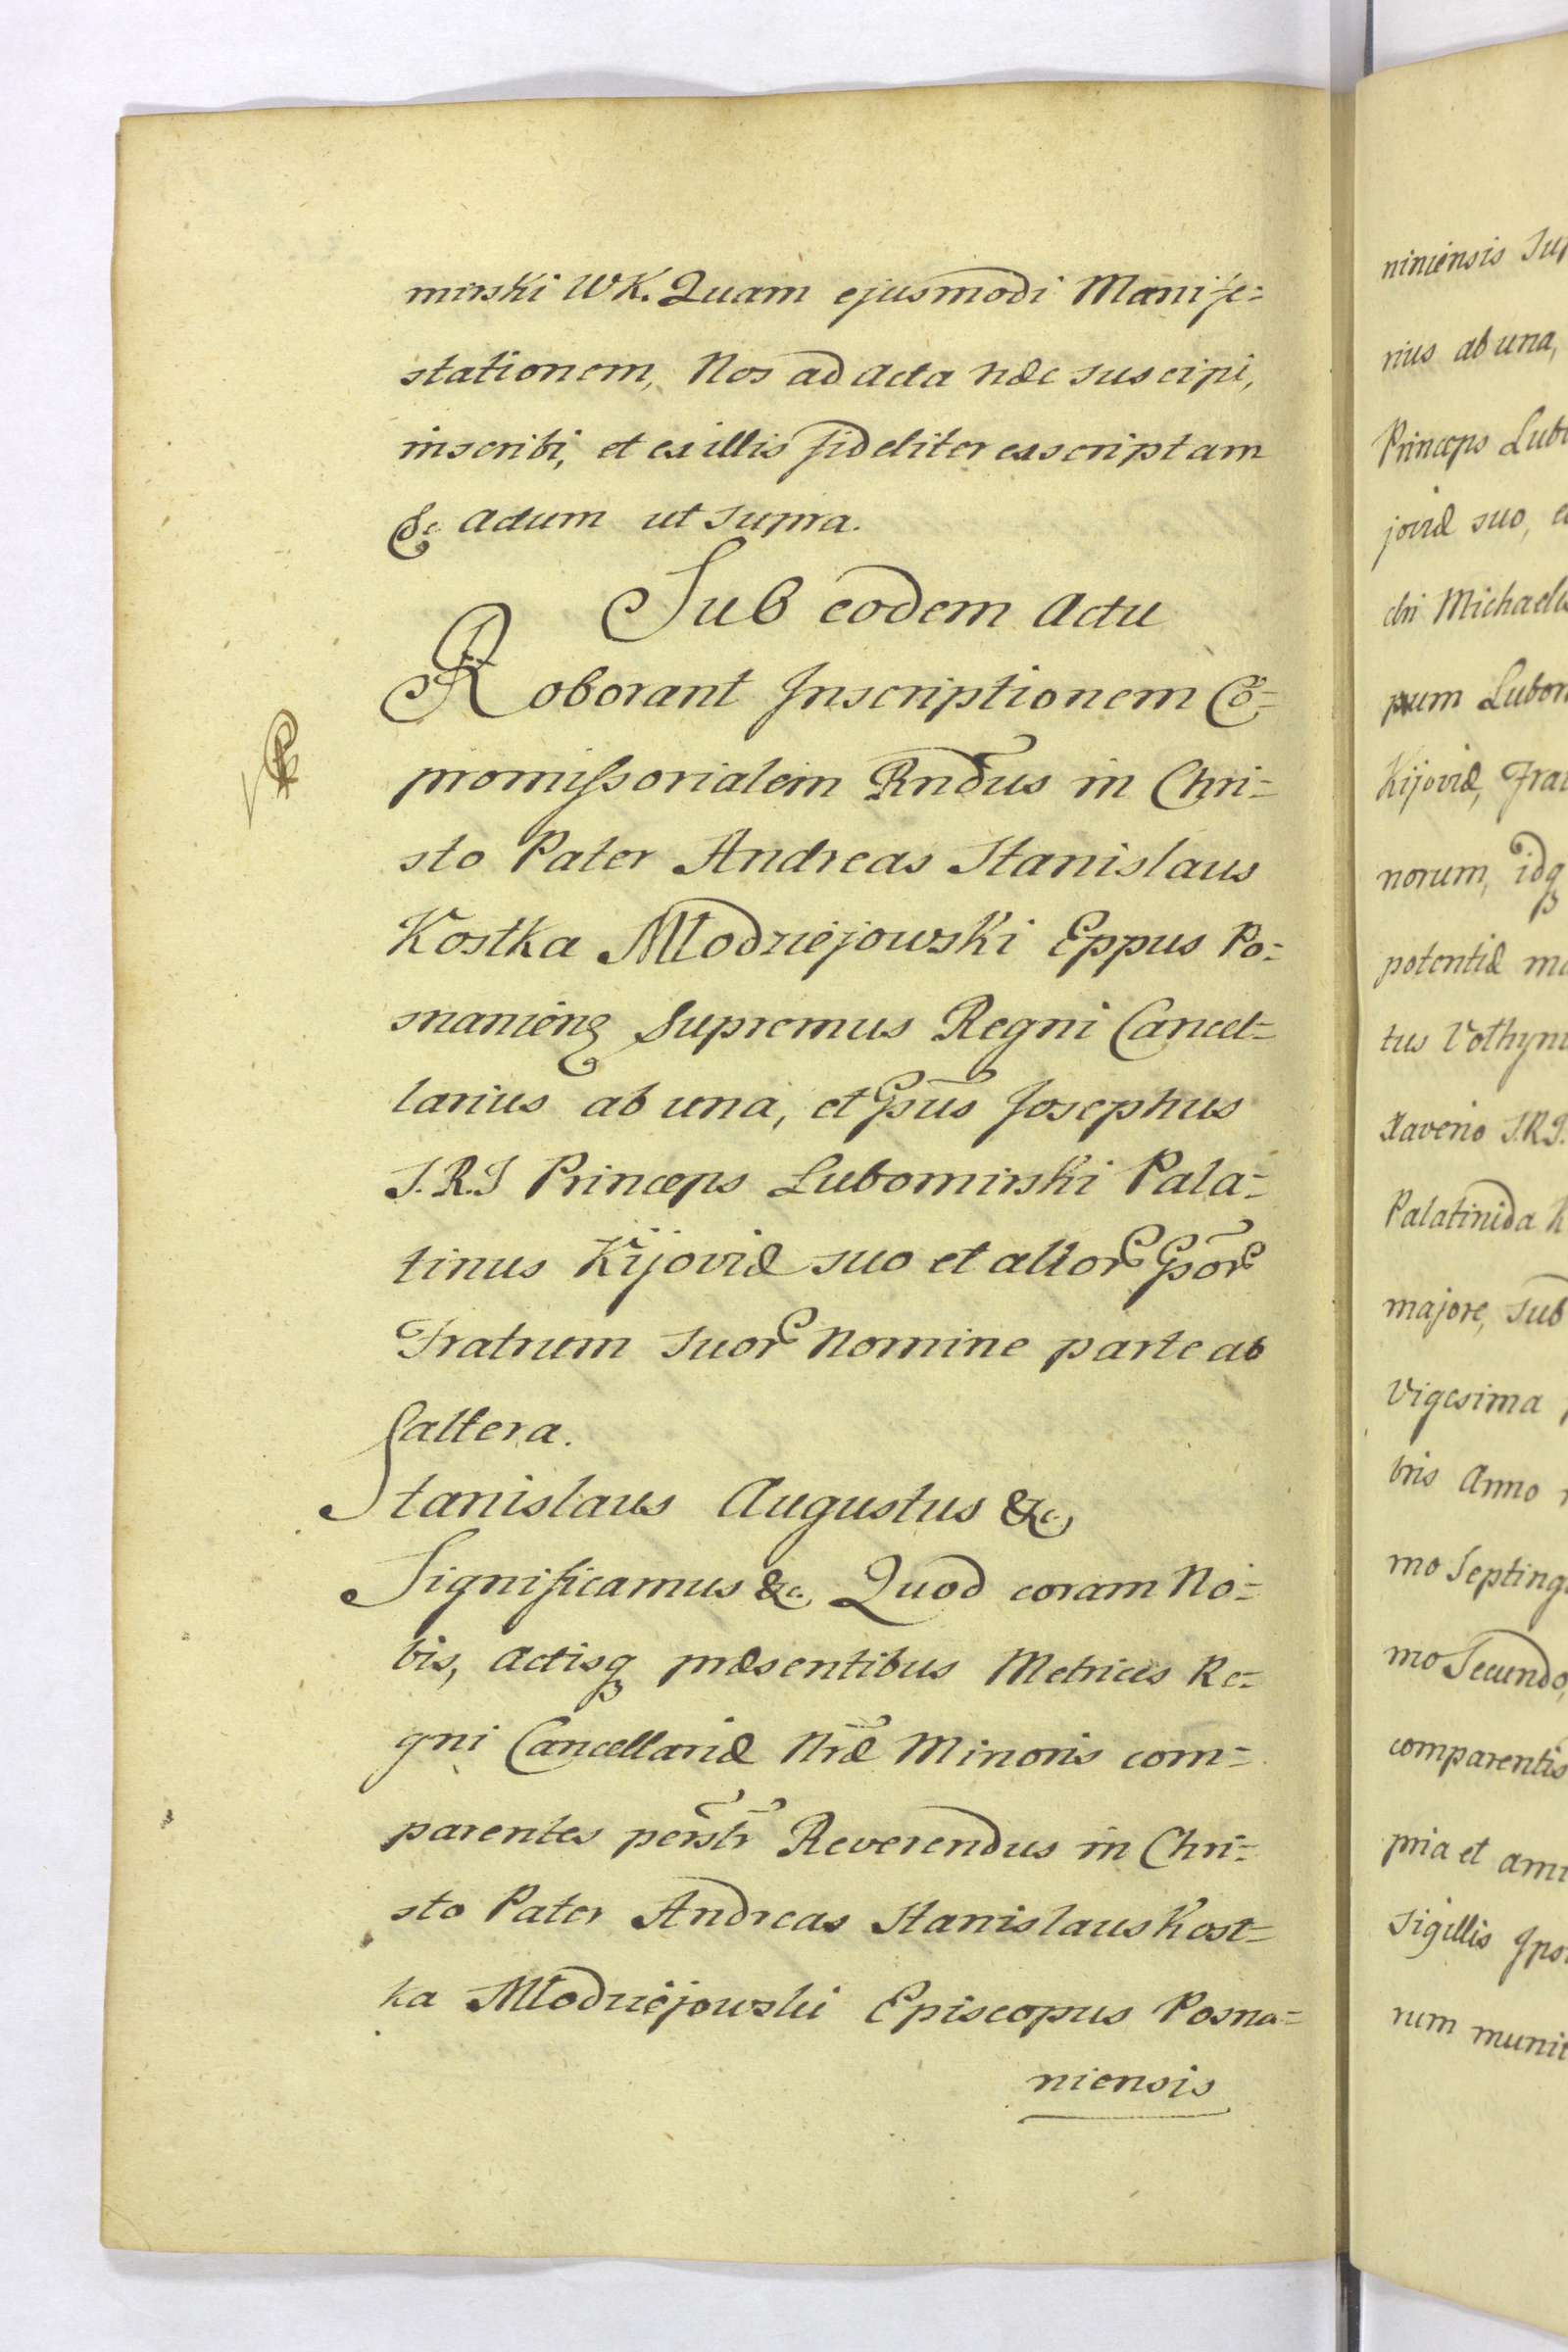 mirski WK. Quam ejusmodi Manife=
stationem, Nos ad Acta hæc suscipi,
inscribi, et ex illis fideliter exscriptam
&c Actum ut supra.
Sub eodem Actu
Roborant Inscriptionem Co̅=
promissorialem Rndus in Chri=
sto Pater Andreas Stanislaus
Kostka Młodziejowski Eppus Po=
snanien̅ Supremus Regni Cancel=
larius ab una, et Gsus Josephus
S.R.I Princeps Lubomirski Pala=
tinus Kijoviæ suo et alior Gsor
Fratrum suor Nomine parte ab
altera.
Stanislaus Augustus &c.
Significamus &c. Quod coram No=
bis, Actisq præsentibus Metrices Re=
gni Cancellariæ Nræ Minoris com=
parentes persltr Reverendus in Chri=
sto Pater Andreas Stanislaus Kost=
ka Młodziejowski Episcopus Posna=
niensis
niniensis Su
rius ab una,
Princeps Lub
joviæ suo, e
chi Michaelis
pum Lubom
Kijoviæ, Fra
norum, idq
potentiæ ma
tus Volhyni
Xaverio S.R.I.
Palatinida K
majore, sub
Vigesima
bris Anno
mo Septing
mo Secundo,
comparentis
pria et ami
Sigillis Ipso
rum munit